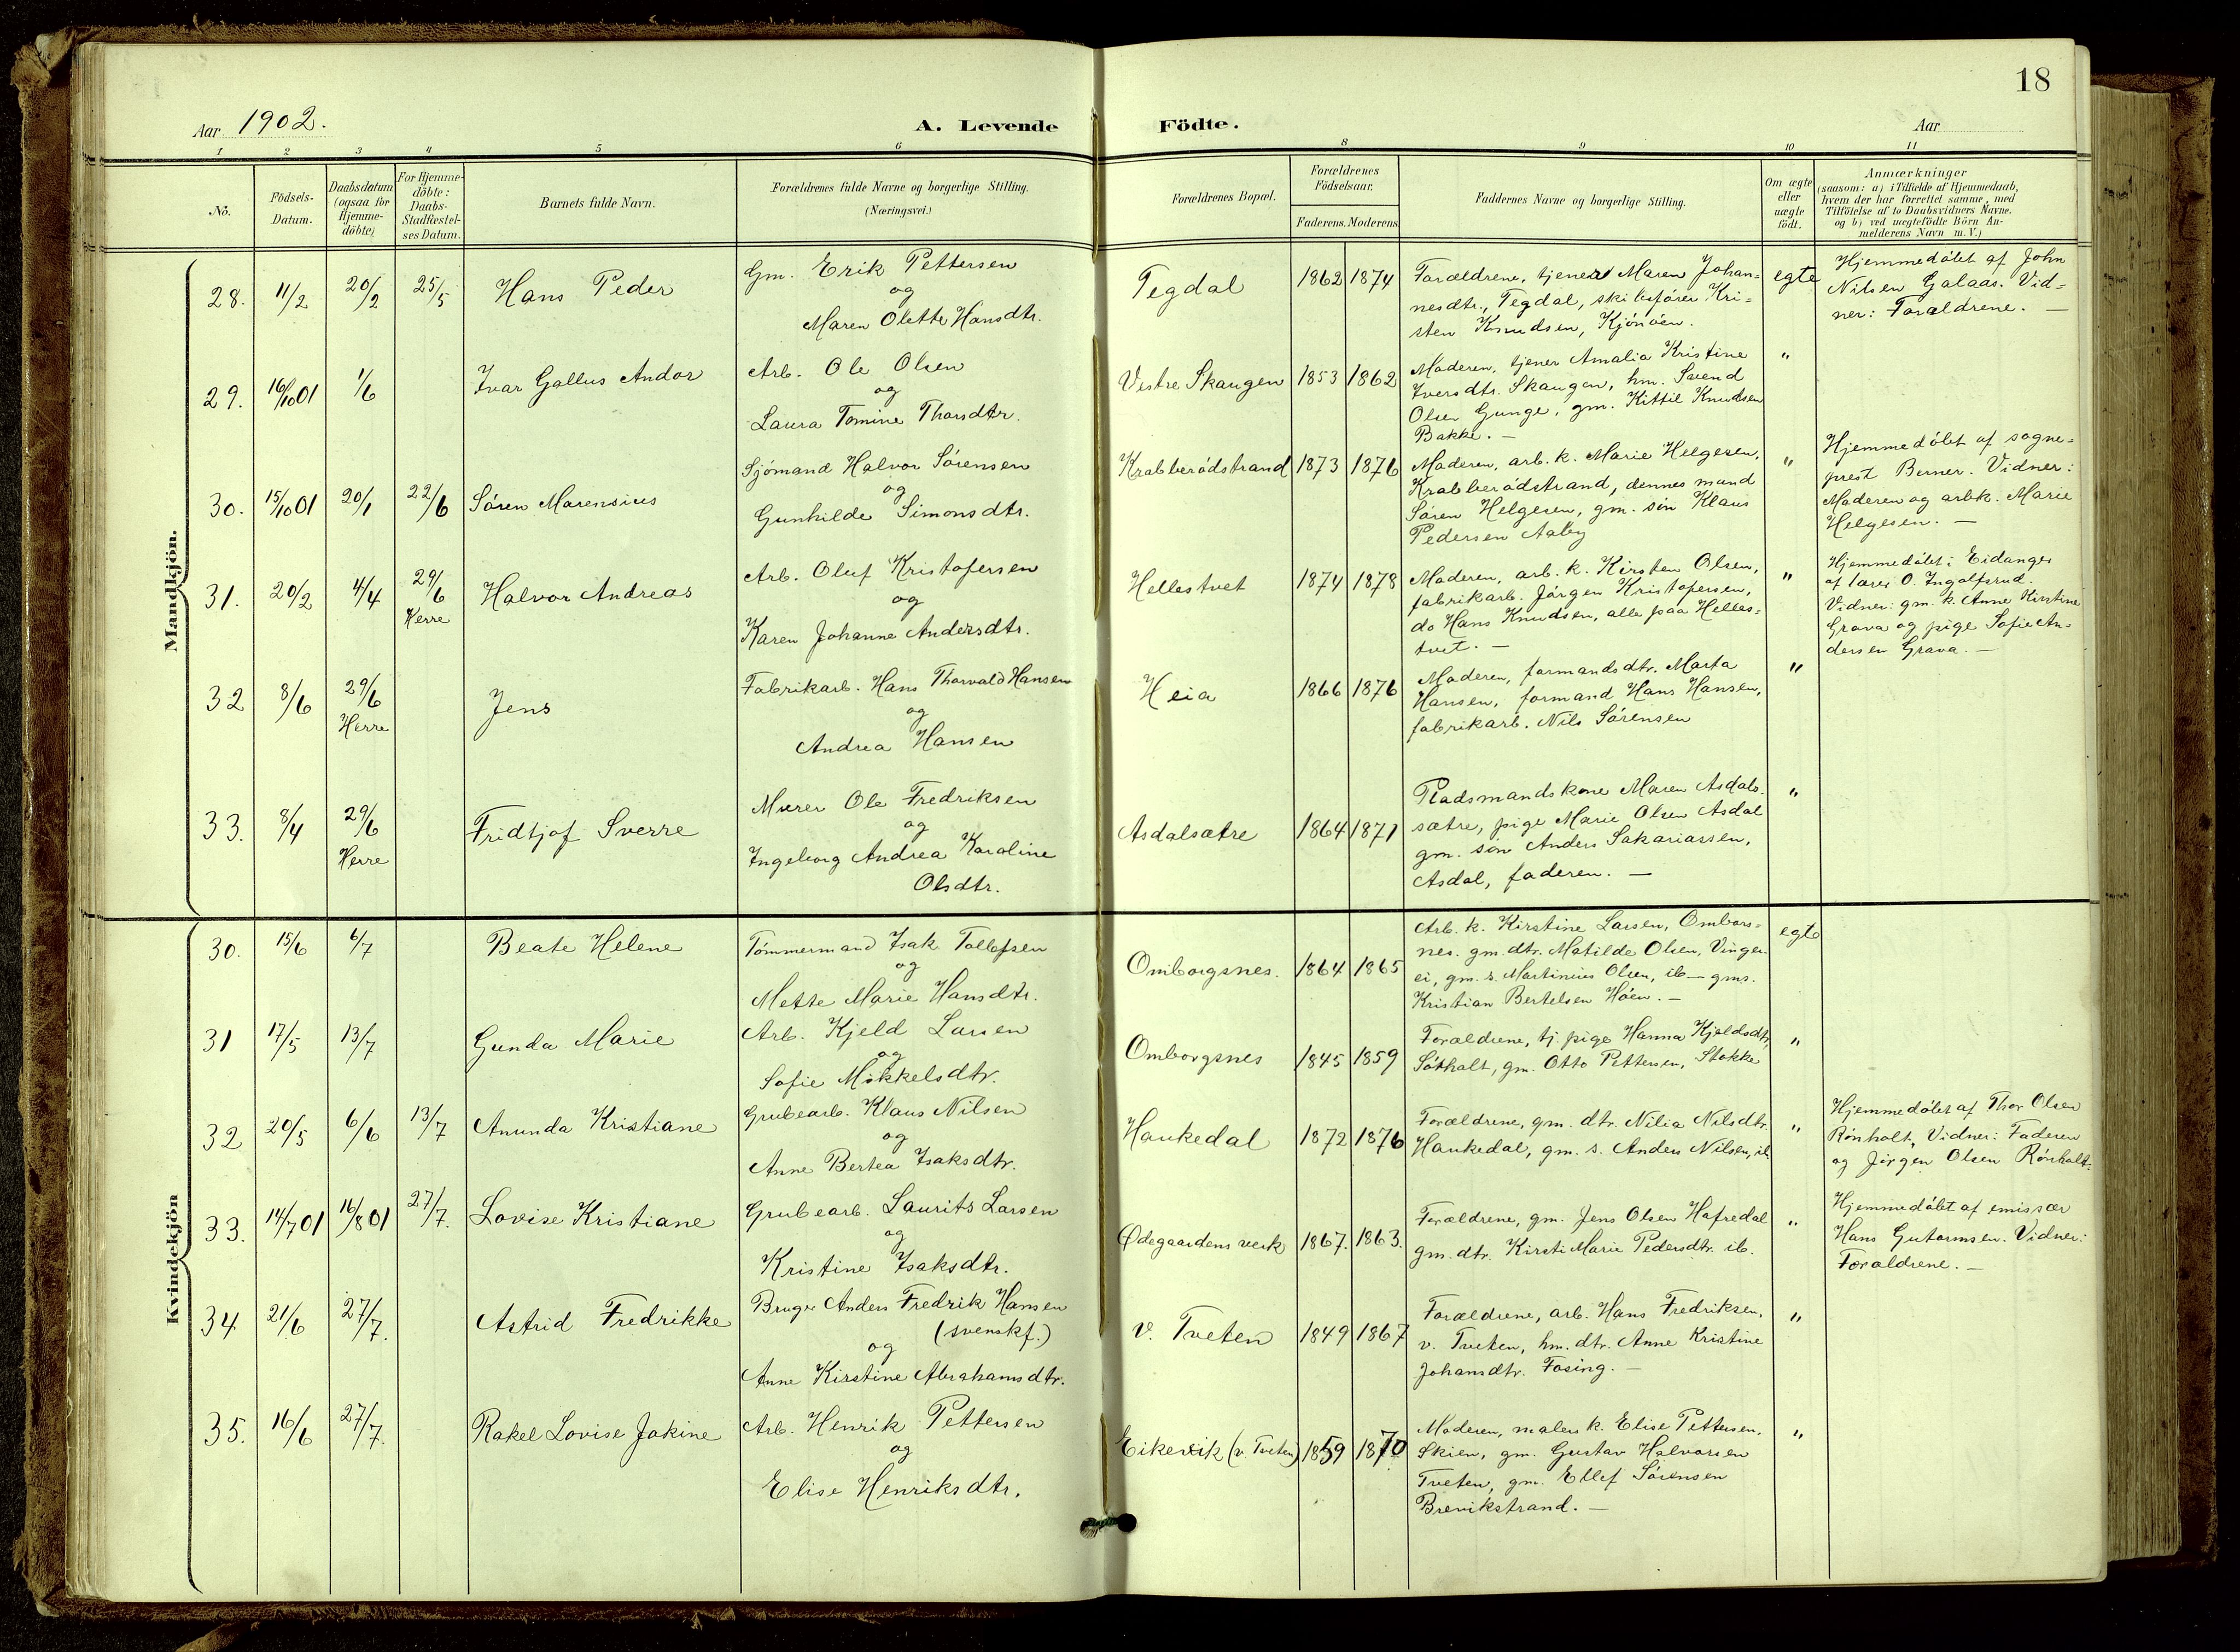 18
Aar 1902.
A. Levende Födte.
Aar
1 2 3 4 5 6 8 9 10 11
No.
Födsels-
Datum.
Daabsdatum
(ogsaa for
Hjemme-
döbte)
For Hjemme-
döbte:
Daabs-
Stadfæstel-
ses Datum.
Barnets fulde Navn.
Forældrenes fulde Navne og borgerlige Stilling.
(Næringsvei.)
Forældrenes Bopæl.
Forældrenes
Födselsaar.
Faderens. Moderens
Faddernes Navne og borgerlige Stilling.
Om ægte
eller
uægte
födt.
Anmærkninger
(saasom: a) i Tilfælde af Hjemmedaab,
hvem der har forrettet samme, med
Tilföielse af to Daabsvidners Navne.
og b) ved uægtefödte Börn An-
melderens Navn m. V.)
Mandkjön.
28. 11/2 20/2 25/5 Hans Peder
Gm. Erik Pettersen
og
Maren Olette Hansdtr.
Tegdal 1862 1874
Forældrene, tjener Maren Johan=
nesdtr., Tegdal, skibsförer Kri=
sten Knudsen, Kjönöen.
egte
Hjemmedöbt af John
Nilsen Galaas. Vid=
ner: Forældrene. —
29. 16/10 01 1/6 Ivar Gallus Andor
Arb. Ole Olsen
og
Laura Tomine Thorsdtr.
Vestre Skaugen 1853 1862
Moderen, tjener Amalia Kristine
Iversdtr. Skaugen, hm. Svend
Olsen Gunge, gm. Kittil Knudsen
Bakke. —
"
30. 15/10 01 20/1 22/6 Sören Marensius
Sjömand Halvor Sörensen
og
Gunhilde Simonsdtr.
Krabberödstrand 1873 1876
Moderen, arb. k. Marie Helgesen,
Krabberödstrand, dennes mand
Sören Helgesen, gm. sön Klaus
Pedersen Aaby
"
Hjemmedöbt af sogne=
prest Berner. Vidner:
Moderen og arbk. Marie
Helgesen. —
31. 20/2 4/4 29/6 Herre Halvor Andreas
Arb. Oluf Kristofersen
og
Karen Johanne Andersdtr.
Hellestvet 1874 1878
Moderen, arb. k. Kirsten Olsen,
fabrikarb. Jörgen Kristofersen,
do Hans Knudsen, alle paa Helles=
tvet. —
"
Hjemmedöbt i Eidanger
af lærer O. Ingolfsrud.
Vidner: gm. k. Anne Kirstine
Grava og pige Sofie An=
dersen Grava. —
32 8/6 29/6 Herre Jens
Fabrikarb. Hans Thorvald Hansen
og
Andrea Hansen
Heia 1866 1876
Moderen, formandsdtr. Marta
Hansen, formand Hans Hansen,
fabrikarb. Nils Sörensen
"
33. 8/4 29/6 Herre Fridtjof Sverre
Murer Ole Fredriksen
og
Ingeborg Andrea Karoline
Olsdtr.
Asdalsætre 1864 1871
Pladsmandskone Maren Asdals
sætre, pige Marie Olsen Asdal
gm. sön Anders Sakariassen,
Asdal, faderen. —
"
Kvindekjön
30. 15/6 6/7 Beate Helene
Tömmermand Isak Tollefsen
og
Mette Marie Hansdtr.
Omborgsnes. 1864 1865
Arb. k. Kirstine Larsen, Ombors=
nes. gm. dtr. Matilde Olsen, Vinger
ei, gm. s. Martinius Olsen, ib — gms.
Kristian Bertelsen Höen. —
egte
31 17/5 13/7 Gunda Marie
Arb. Kjeld Larsen
og
Sofie Mikkelsdtr.
Omborgsnes 1845 1859
Forældrene, tj. pige Hanna Kjeldsdtr,
Sötholt, gm. Otto Pettersen, Stokke
"
32 20/5 6/6 13/7 Anunda Kristiane
Grubearb. Klaus Nilsen
og
Anne Bertea Isaksdtr.
Haukedal 1872 1876
Forældrene, gm. dtr. Nilia Nilsdtr.
Haukedal, gm. s. Anders Nilsen, ib.
"
Hjemmedöbt af Thor Olsen
Rönholt, Vidner: Faderen
og Jörgen Olsen Rönholt.
33. 14/7 01 16/8 01 27/7. Lovise Kristiane
Grubearb. Laurits Larsen
og
Kristine Isaksdtr.
Ødegaardens verk 1867. 1863.
Forældrene, gm. Jens Olsen Hafredal
gm. dtr. Kirsti Marie Pedersdtr. ib.
"
Hjemmedöbt af emissær
Hans Gutormsen. Vidner:
Forældrene. —
34 21/6 27/7. Astrid Fredrikke
Bruger Anders Fredrik Hansen
(svenskf.)
og
Anne Kirstine Abrahamsdtr.
v. Tveten 1849 1867
Forældrene, arb. Hans Fredriksen,
v. Tveten, hm. dtr. Anne Kristine
Johansdtr. Fosing. —
"
35. 16/6 27/7. Rakel Lovise Jokine
Arb. Henrik Pettersen
og
Elise Henriksdtr.
Eikevik (v. Tveten) 1859 1870
Moderen, malers k. Elise Pettersen,
Skien, gm. Gustav Halvorsen
Tveten, gm. Ellef Sörensen
Brevikstrand. —
"